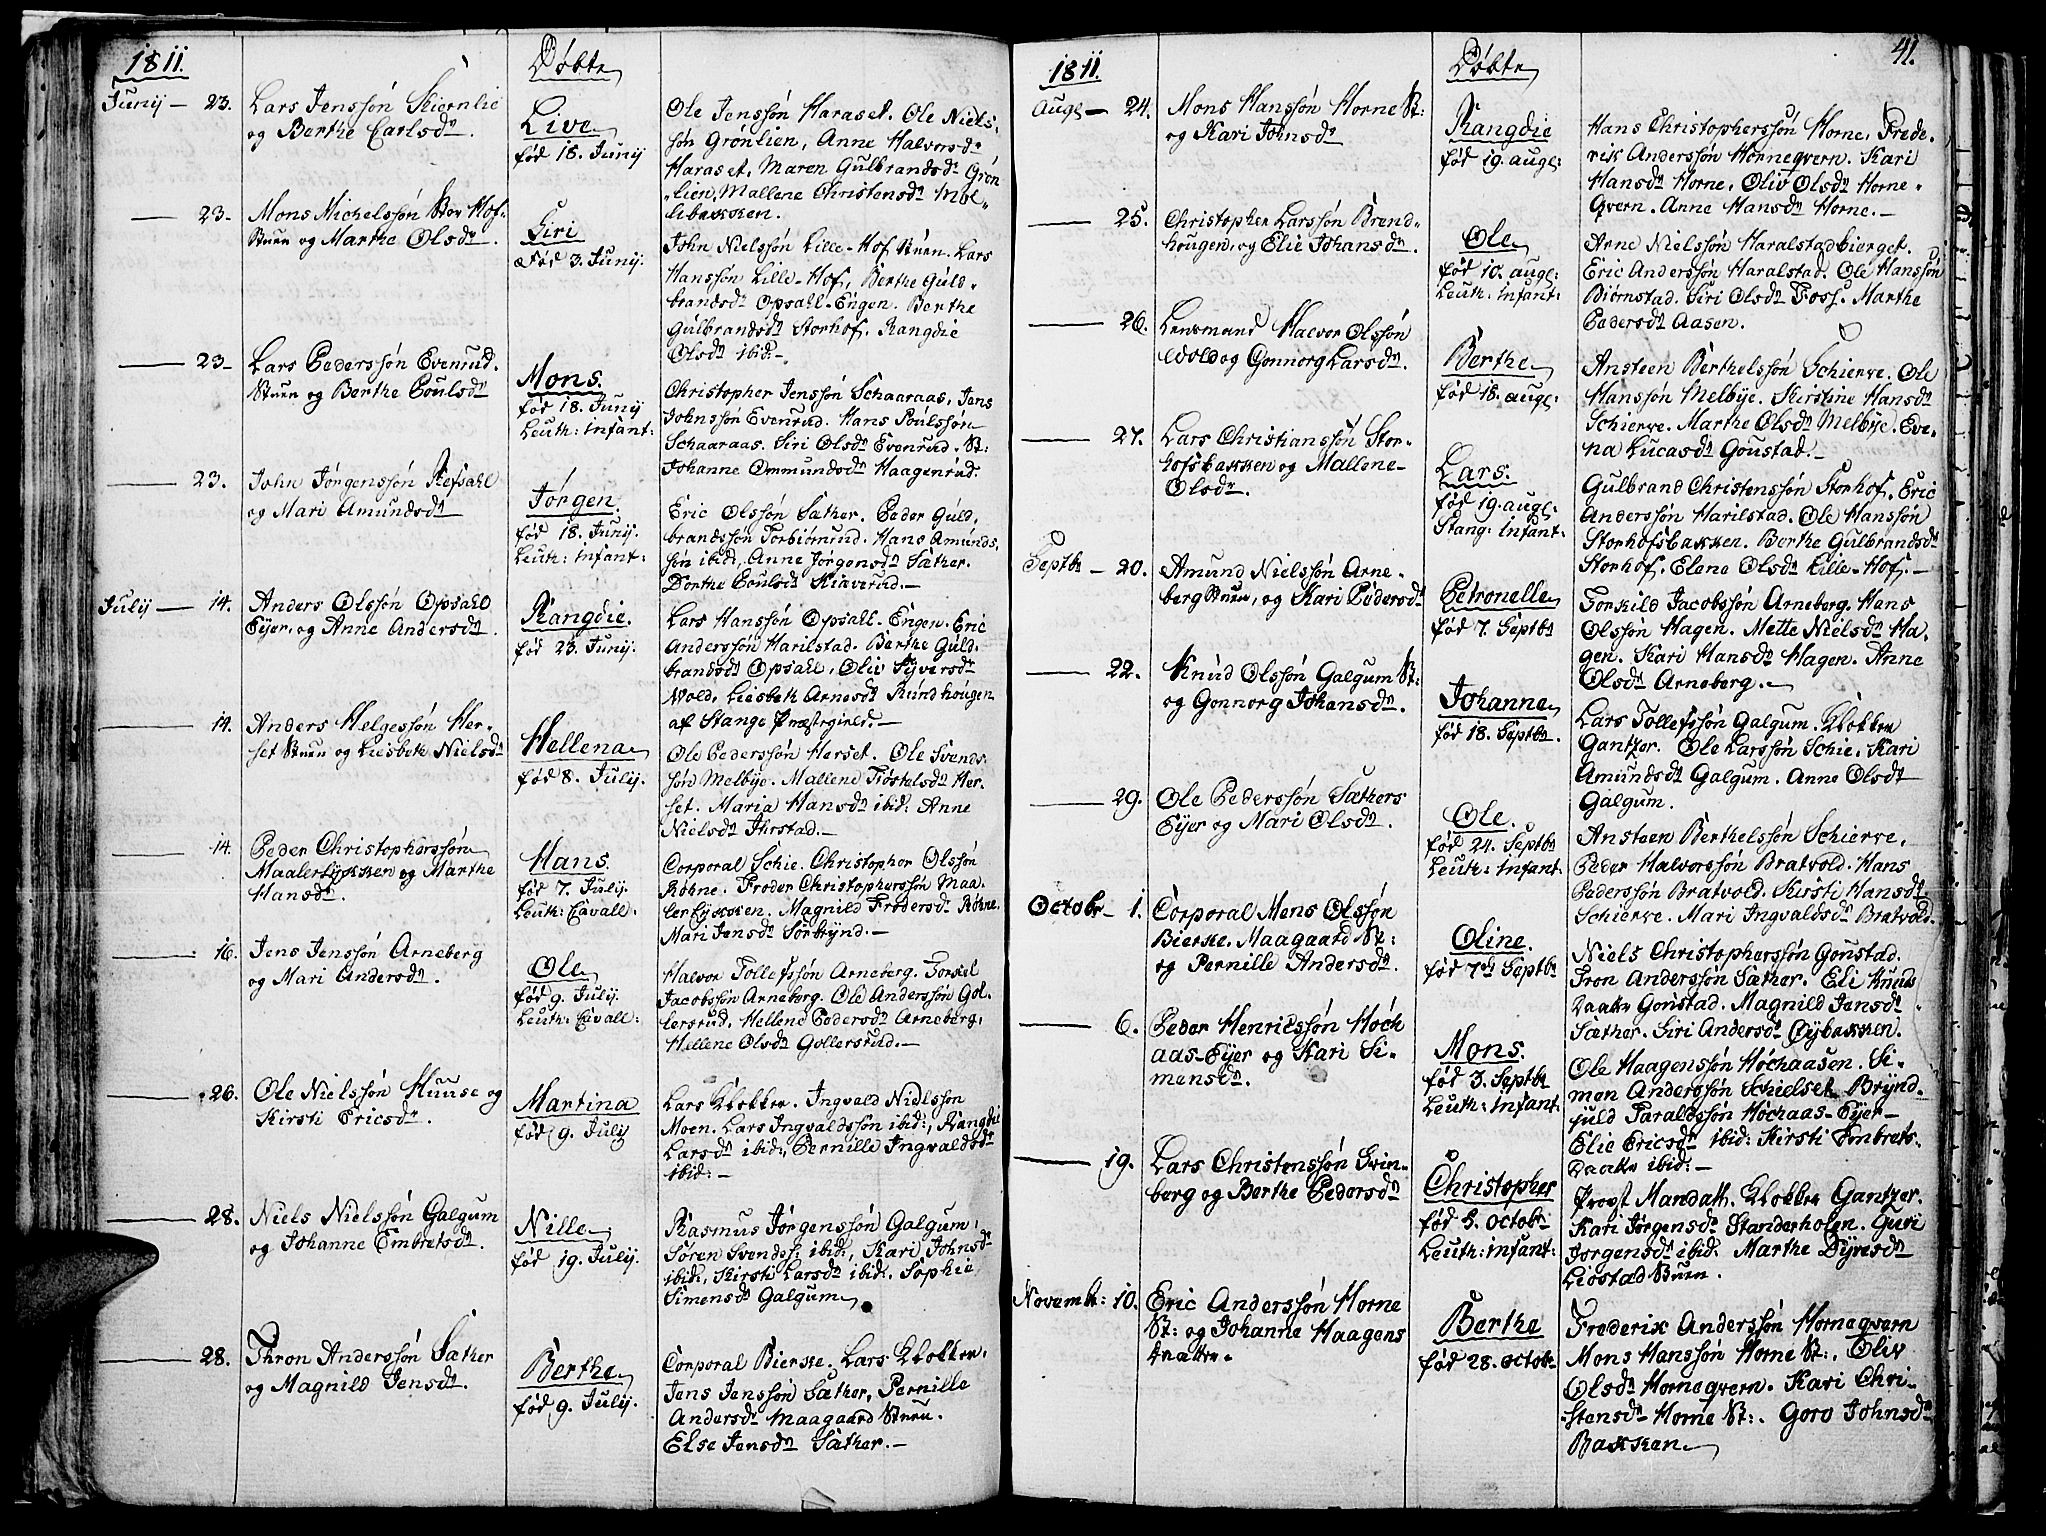 1811.
Døbte
Junij — 23. Lars Jenssøn Skiernlie
og Berthe Carlsdr.
Live
fød 18. Junij
Ole Jenssøn Haraset. Ole Niels-
søn Grønlien, Anne Halvorsdr
Haraset, Maren Gulbrandsdr Grøn-
lien, Mallene Christensdr Møl-
lebakken.
— 23. Mons Michelssøn Stor Hof-
Stuen og Marthe Olsdr.
Siri
Fød 3. Junij.
John Nielssøn Lille-Hof Stuen. Lars
Hanssøn Lille-Hof, Berthe Guld-
brandsdr Opsall-Engen. Berthe
Gulbrandsdr Storhof. Rangdie
Olsdr ibid.—
— 23. Lars Pederssøn Evenrud-
Stuen og Berthe Poulsdr
Mons.
fød 18. Junij
Leuth: infant:
Christopher Jenssøn Schaaraas, Jens
Johnssøn Evenrud. Hans Poulssøn
Schaaraas. Siri Olsdr Evenrud-St:
Johanne Ommundsdr Haagenrud.
— 23. John Jørgenssøn Refsahl
og Mari Amundsdr
Jørgen.
fød 18. Junij.
Leuth: infant:
Eric Olssøn Sæther. Peder Guld-
brandssøn Torbiørnrud. Hans Amunds-
søn ibid:, Anne Jørgensdr Sæther.
Dorthe Poulsdr Kiaverud.—
Julij — 14. Anders Olssøn Opsahl
Ejer, og Anne Andersdr.
Rangdie.
fød 23. Junij.
Lars Hanssøn Opsall-Engen. Eric
Anderssøn Harilstad. Berthe Guld-
brandsdr Opsahl, Oliv Syversdr
Vold, Liesbeth Arnesdr Rundhougen
af Stange Præstegield.—
— 14. Anders Helgessøn Her-
set Stuen og Liesbeth Nielsdr
Hellena
fød 8. Julij.
Ole Pederssøn Herset. Ole Svends-
søn Melbye. Mallene Trostelsdr Her-
set. Maria Hansdr ibid: Anne
Nielsdr Ihrstad.—
— 14. Peder Christopherssøn
Maalerløkken og Marthe
Hansdr.
Hans.
fød 7. Julij.
Leuth: Cavall:
Corporal Schie. Christopher Olssøn
Røhne. Froder Christopherssøn Maa-
lerløkken. Magnild Frodersdr Røhne.
Mari Jensdr Sørbrynd.—
— 16. Jens Jenssøn Arneberg
og Mari Andersdr.
Ole
fød 9. Julij.
Leuth: Cavall:
Halvor Tollefssøn Arneberg. Torkel
Jacobssøn Arneberg. Ole Anderssøn Gol-
lersrud. Hellene Pedersdr Arneberg,
Hellene Olsdr Gollersrud.—
— 26. Ole Nielssøn Huuse og
Kirsti Ericsdr.
Martina
fød 9. Julij
Lars Klokker. Ingvald Nidlssøn
Moen. Lars Ingvaldssøn ibid:, Rangdie
Larsdr ibid:, Pernille Ingvaldsdr
ibid:—
— 28. Niels Nielssøn Galgum
og Johanne Embretsdr.
Nille
fød 19. Julij.
Rasmus Jørgenssøn Galgum,
Søren Svendss: ibid:, Kari Johnsdr
ibid:, Kirsti Larsdr ibid:. Sophie
Simensdr Galgum
— 28. Thron Anderssøn Sæther
og Magnild Jensdr.
Berthe
fød 9. Julij.
Corporal Bierke. Lars Klokker.
Jens Jenssøn Sæther, Pernille
Andersdr Maagaard Stuen.
Else Jensdr Sæther.—
41.
1811.
Døbte
Augl — 24. Mons Hanssøn Horne St:
og Kari Johnsdr
Rangdie
fød 19. augl:
Hans Christopherssøn Horne, Frede-
rik Anderssøn Horneqvern. Kari
Hansdr Horne, Oliv Olsdr Horne-
Qvern. Anne Hansdr Horne.—
— 25. Christopher Larssøn Brend-
hougen, og Elie Johansdr.
Ole
fød 10. augl:
Leuth: infant:
Arne Nielssøn Haralstadbierget.
Eric Anderssøn Haralstad. Ole Hanssøn
Biørnstad. Siri Olsdr Foss. Marthe
Pedersdr Aasen.
— 26. Lensmand Halvor Olssøn
Wold og Gonnorg Larsdr.
Berthe
fød 18. augl:
Ansteen Berthelssøn Schierve. Ole
Hanssøn Melbye. Kirstine Hansdr
Schierve. Marthe Olsdr Melbye. Eve-
na Lucasdr Goustad.—
— 27. Lars Christianssøn Stor-
hofsbakken og Mallene
Olsdr.
Lars.
fød 19. augl:
Stang: infant:
Gulbrand Christenssøn Storhof. Eric
Anderssøn Harilstad. Ole Hanssøn
Storhofsbakken. Berthe Gulbrandsdr
Storhof. Elene Olsdr Lille-Hof.—
Septbr — 20. Amund Nielssøn Arne-
berg Stuen, og Kari Pedersdr
Petronelle
fød 7. Septbr
Torkild Jacobssøn Arneberg. Hans
Olssøn Hagen. Mette Nielsdr Ha-
gen. Kari Hansdr Hagen. Anne
Olsdr Arneberg.
— 22. Knud Olssøn Galgum St:
og Gonnorg Johansdr.
Johanne
fød 18. Septbr.
Lars Tollefssøn Galgum. Klokker
Gantzer. Ole Larssøn Schie. Kari
Amundsdr Galgum. Anne Olsdr
Galgum.
— 29. Ole Pederssøn Sæthers
Eijer og Mari Olsdr.
Ole.
fød 24. Septbr
Leuth: infant.
Ansteen Berthelssøn Schierve,
Peder Halvorssøn Bratvold. Hans
Pederssøn Bratvold. Kirsti Hansdr
Schierve. Mari Ingvaldsdr Bratvold.
Octobr — 1. Corporal Mons Olssøn
Bierke. Maagaard St:
og Pernille Andersdr.
Oline.
fød 7de Septbr
Niels Christopherssøn Gonstad.
Tron Anderssøn Sæther. Eli Knuds
Daatter Gonstad. Magnild Jensdr
Sæther. Siri Andersdr Dybakken.
— 6. Peder Henricssøn Høch
aas-Eijer og Kari Si-
mensdr.
Mons.
fød 3. Septbr
Leuth: infant.
Ole Haagenssøn Høchaasen. Si-
men Anderssøn Schielset. Brynd-
juld Taraldssøn Høchaas-Eijer—
Elie Ericsdr ibid: Kirsti Embrets-
Daatter ibid:—
— 19. Lars Christenssøn Svin-
berg og Berthe Pedersdr
Christopher
fød 5. octobr.
Leuth: infant:
Provst Mandath. Klokker Gantzer.
Kari Jørgensdr Standerholen. Guri
Jørgensdr ibid. Marthe Syversdr
Liostad Stuen.
Novembr: 10. Eric Anderssøn Horne
St: og Johanne Haagens
Daatter.
Berthe
fød 28. octobr
Frederik Anderssøn Horneqvern
Mons Hanssøn Horne St:, Oliv
Olsdr Horneqvern. Kari Chri-
stensdr Horne St:. Goro Johnsdr
Bakken